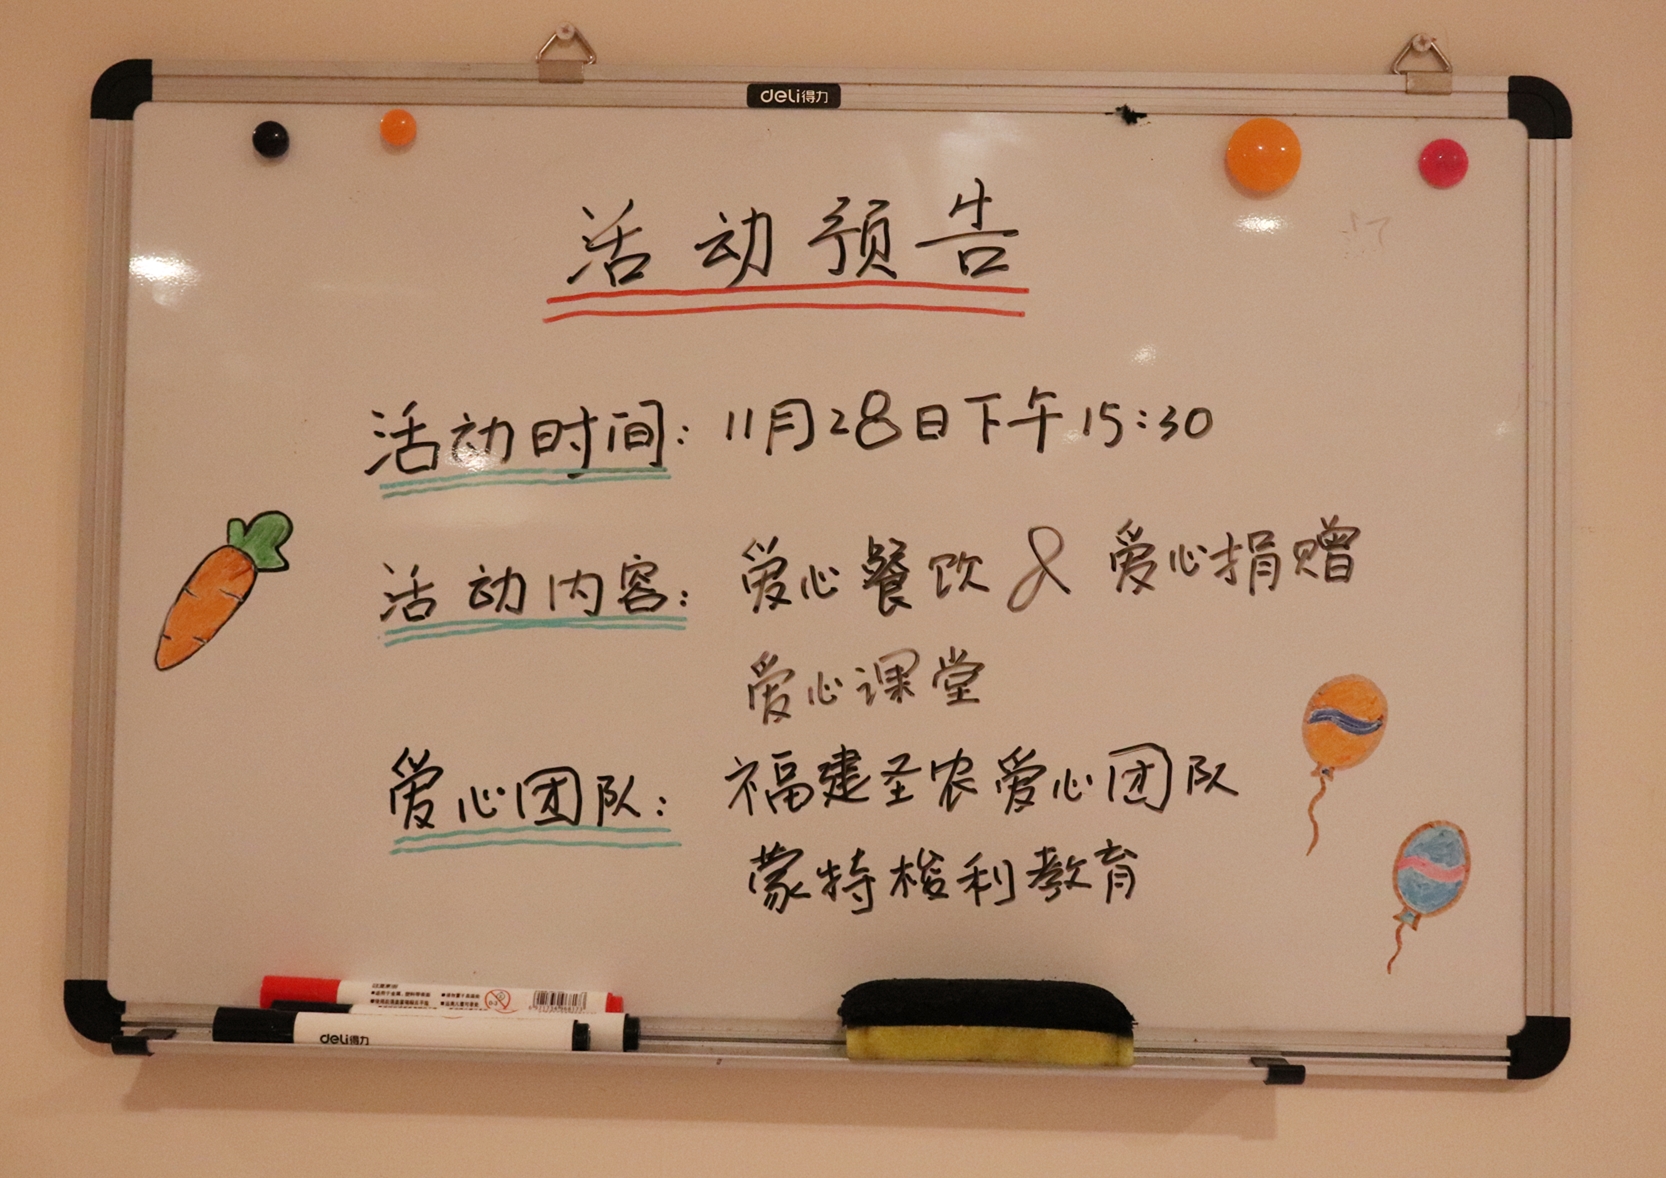 deli得力
活动预告
活动时间: 11月28日下午15:30
活动内容: 爱心餐饮 & 爱心捐赠
爱心课堂
爱心团队: 福建圣农爱心团队
蒙特梭利教育
deli得力